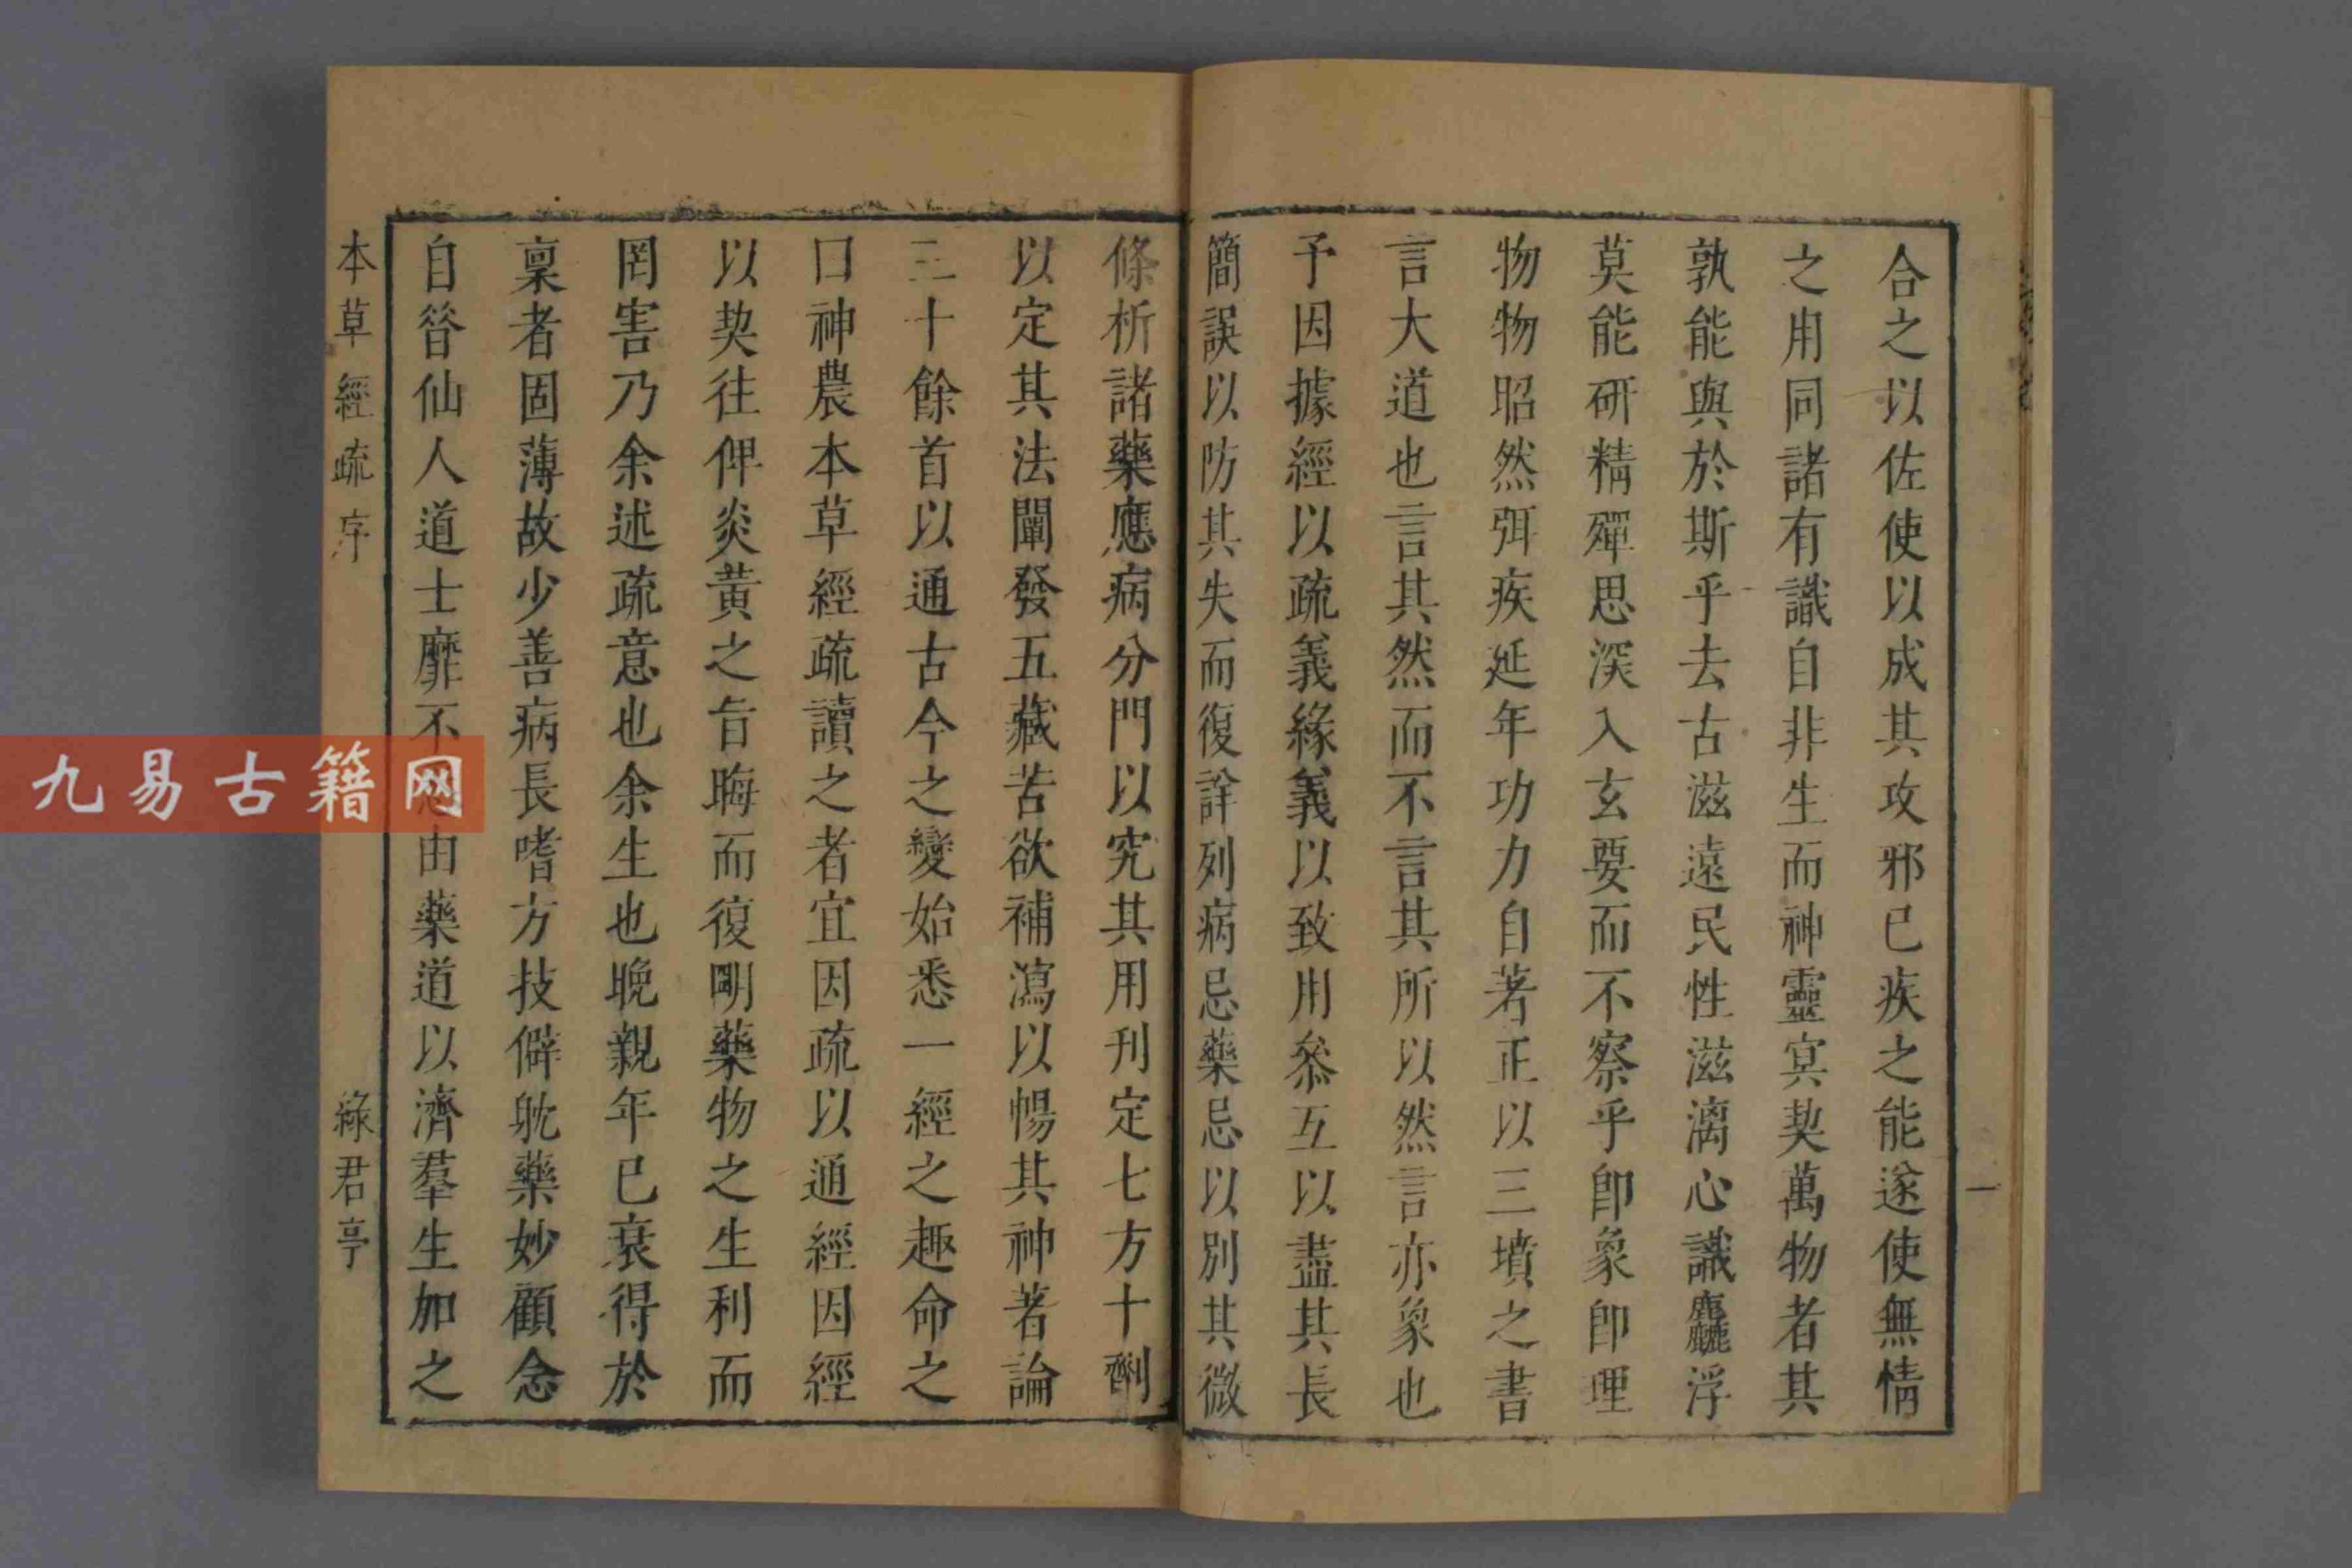 合之以佐使以成其攻邪已疾之能遂使無情
之用同諸有識自非生而神靈冥契萬物者其
孰能與於斯乎去古滋遠民性滋漓心識麤浮
莫能研精殫思深入玄要而不察乎卽象卽理
物物昭然弭疾延年功力自著正以三墳之書
言大道也言其然而不言其所以然言亦象也
予因據經以疏義緣義以致用叅互以盡其長
簡誤以防其失而復詳列病忌藥忌以別其微
條析諸藥應病分門以究其用刊定七方十劑
以定其法闡發五藏苦欲補瀉以暢其神著論
三十餘首以通古今之變始悉一經之趣命之
曰神農本草經疏讀之者宜因疏以通經因經
以契往俾炎黃之旨晦而復明藥物之生利而
罔害乃余述疏意也余生也晚親年已衰得於
稟者固薄故少善病長嗜方技僻躭藥妙顧念
自昝仙人道士靡不由藥道以濟羣生加之
本草經疏 序
綠君亭
一
九易古籍网